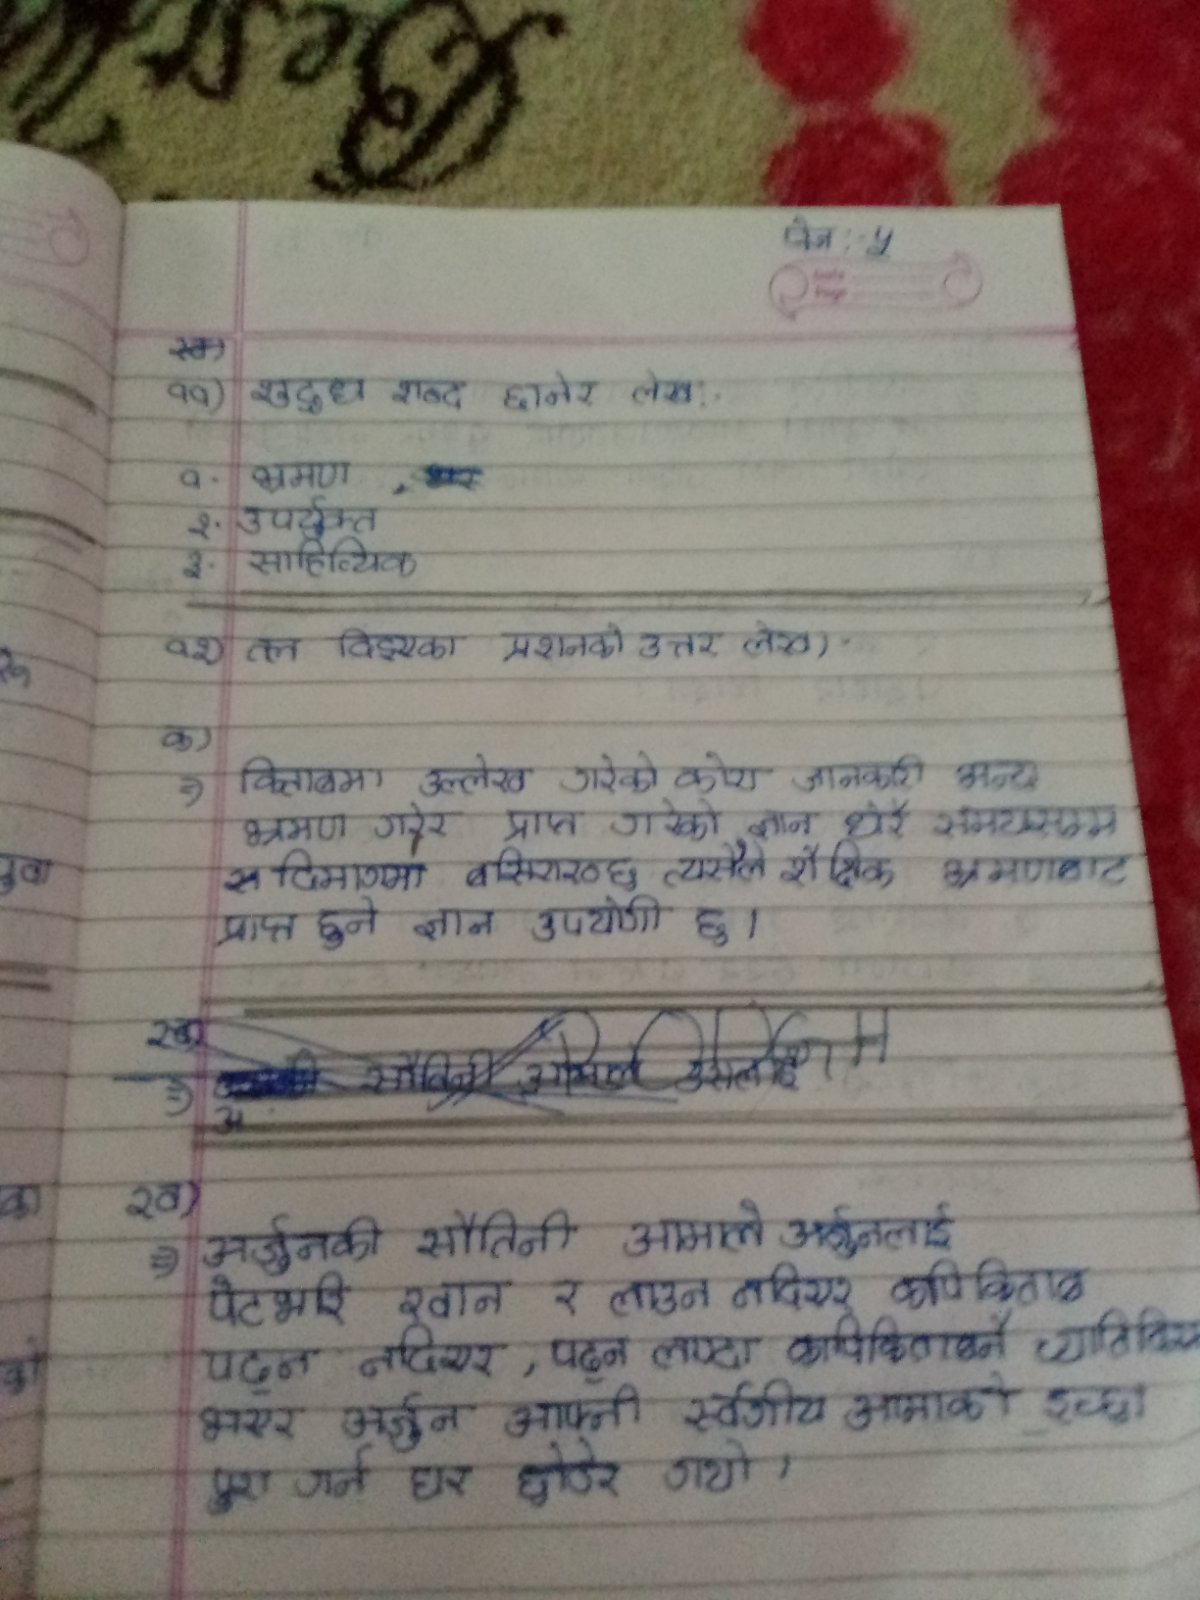 पेज :- ५
११) शुद्ध शब्द छानेर लेख :-
१. भ्रमण ,
२. उपर्युक्त
३. साहित्यिक
१२) तल दिइएका प्रशनको उत्तर लेख ।
क)
⇒ किताबमा उल्लेख गरेको कोरा जानकारी भन्दा
भ्रमण गरेर प्राप्त गरेको ज्ञान धेरै समयसम्म
दिमागमा बसिराख्छ त्यसैले शैक्षिक भ्रमणबाट
प्राप्त हुने ज्ञान उपयोगी छ ।
ख)
⇒ सौतिनी आमाले उसलाई
ख)
⇒ अर्जुनकी सौतिनी आमाले अर्जुनलाई
पेटभरि खान र लाउन नदिएर कपिकिताब
पढ्न नदिएर , पढ्न लाग्दा कपिकिताबनै च्यातिदिए
भएर अर्जुन आफ्नी र्स्वगीय आमाको इच्छा
पुरा गर्न घर छोडेर गयो ।